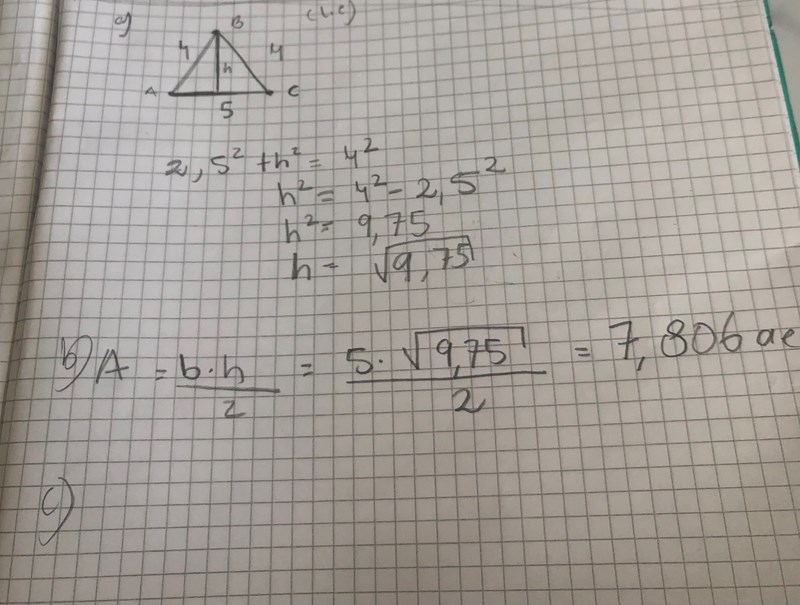 a)
B
4 4
h
A C
5
2,5² + h² = 4²
h² = 4² - 2,5²
h² = 9,75
h = √9,75
b) A = b·h/2 = 5·√9,75/2 = 7,806 ae
c)